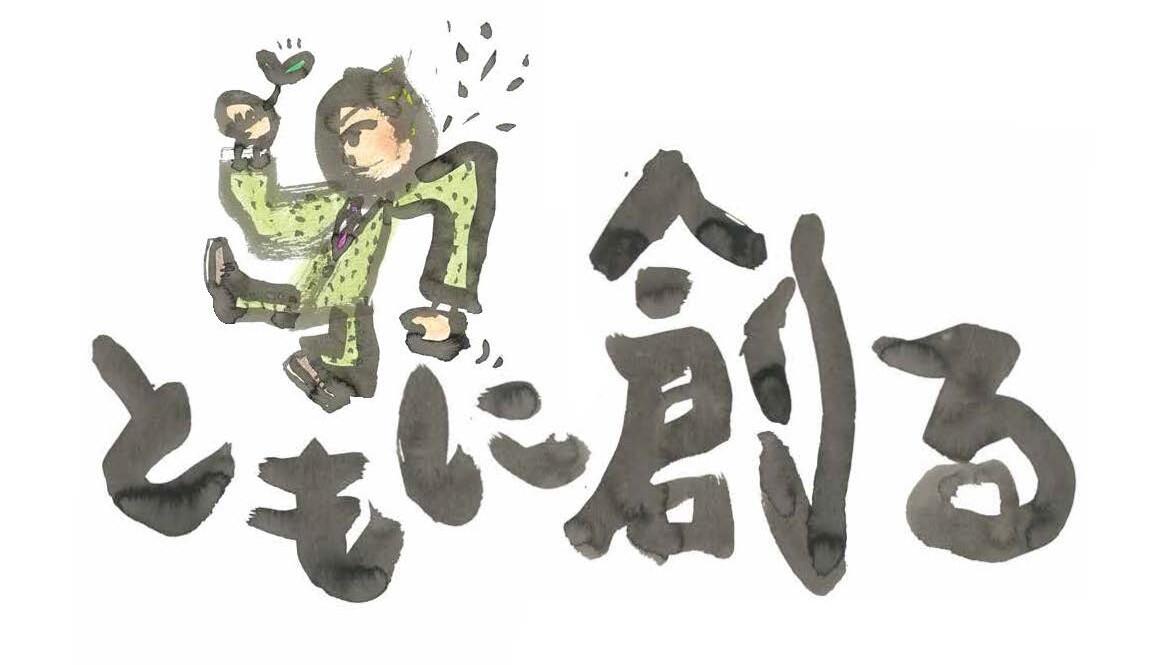 ともに創る